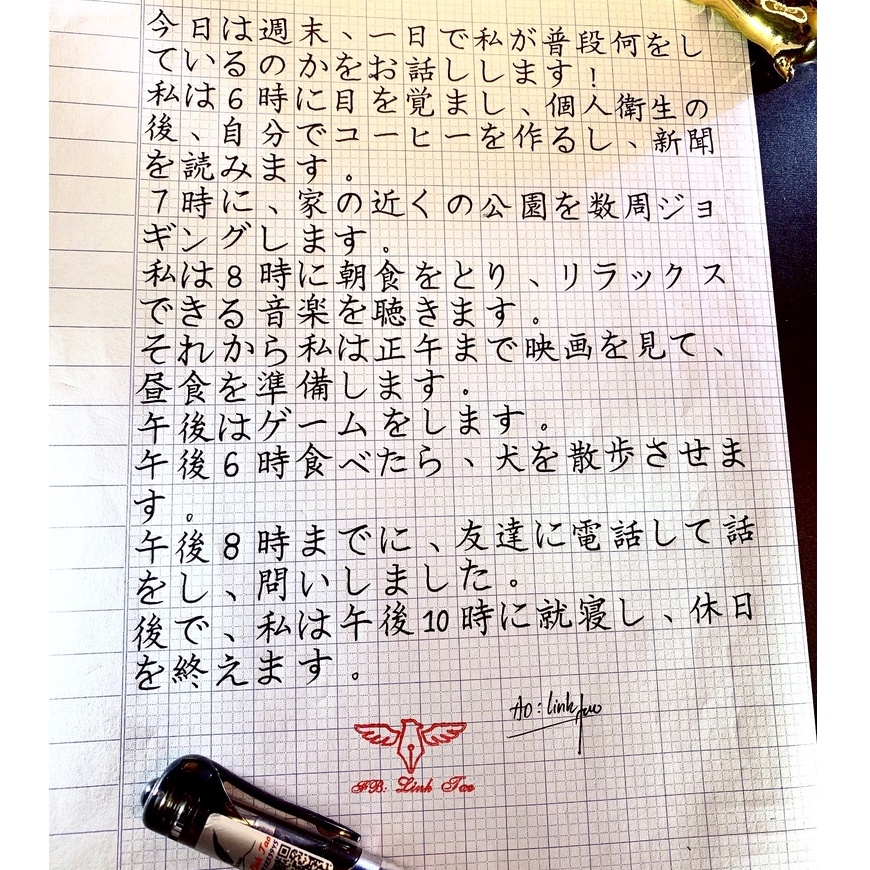 今日は週末、一日で私が普段何をし
ているのかをお話しします!
私は6時に目を覚まし、個人衛生の
後、自分でコーヒーを作るし、新聞
を読みます。
7時に、家の近くの公園を数周ジョ
ギングします。
私は8時に朝食をとり、リラックス
できる音楽を聴きます。
それから私は正午まで映画を見て、
昼食を準備します。
午後はゲームをします。
午後6時食べたら、犬を散歩させま
す。
午後8時までに、友達に電話して話
をし、問いしました。
後で、私は午後10時に就寝し、休日
を終えます。
AD: Link Tao
FB: Link Tao